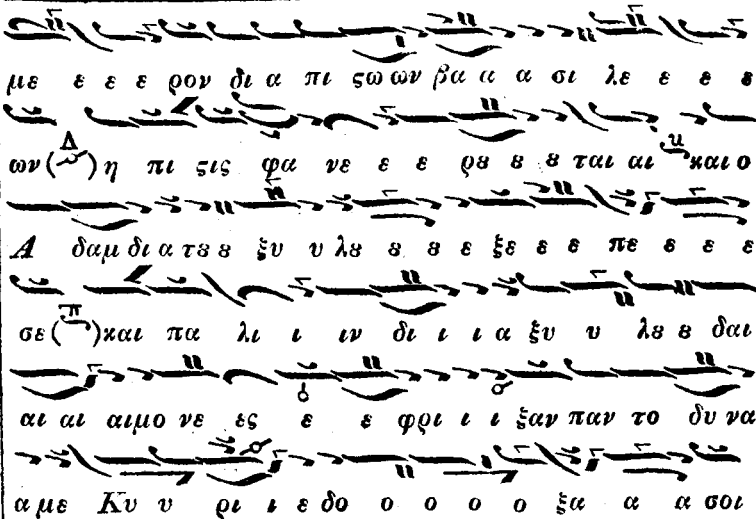 με ε ε ε ρον δι α πι ϛω ων βα α α σι λε ε ε ε
ων (Δ) η πι ϛις φα νε ε ε ρȣ ȣ ȣ ται αι και ο
Α δαμ δι α τȣ ȣ ξυ υ λȣ ȣ ȣ ε ξε ε ε πε ε ε ε
σε (π) και πα λι ι ιν δι ι ι α ξυ υ λȣ ȣ δαι
αι αι αιμο νε ες ε ε φρι ι ι ξαν παν το δυ να
α με Κυ υ ρι ι ε δο ο ο ο ο ξα α α σοι